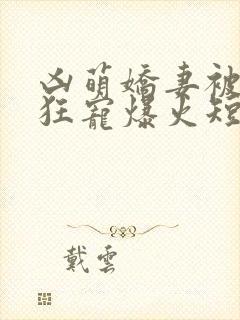 凶萌嬌妻被
狂寵爆火短
戴雲